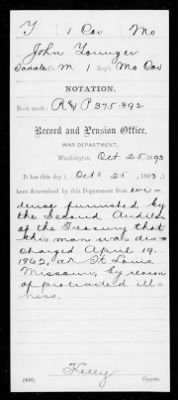 Y 1 Cav Mo
John Younger
Saddler M 1 Reg't Mo Cav
NOTATION.
Book mark: R & P 375,392
Record and Pension Office,
WAR DEPARTMENT,
Washington, Oct 25, 1893
It has this day (Oct 25, 1893)
been determined by this Department from evi-
dence furnished by
the Second Auditor
of the Treasury that
this man was dis-
charged April 19,
1862, at St Louis
Missouri, by reason
of protracted ill-
ness.
Kelly
Copyist.